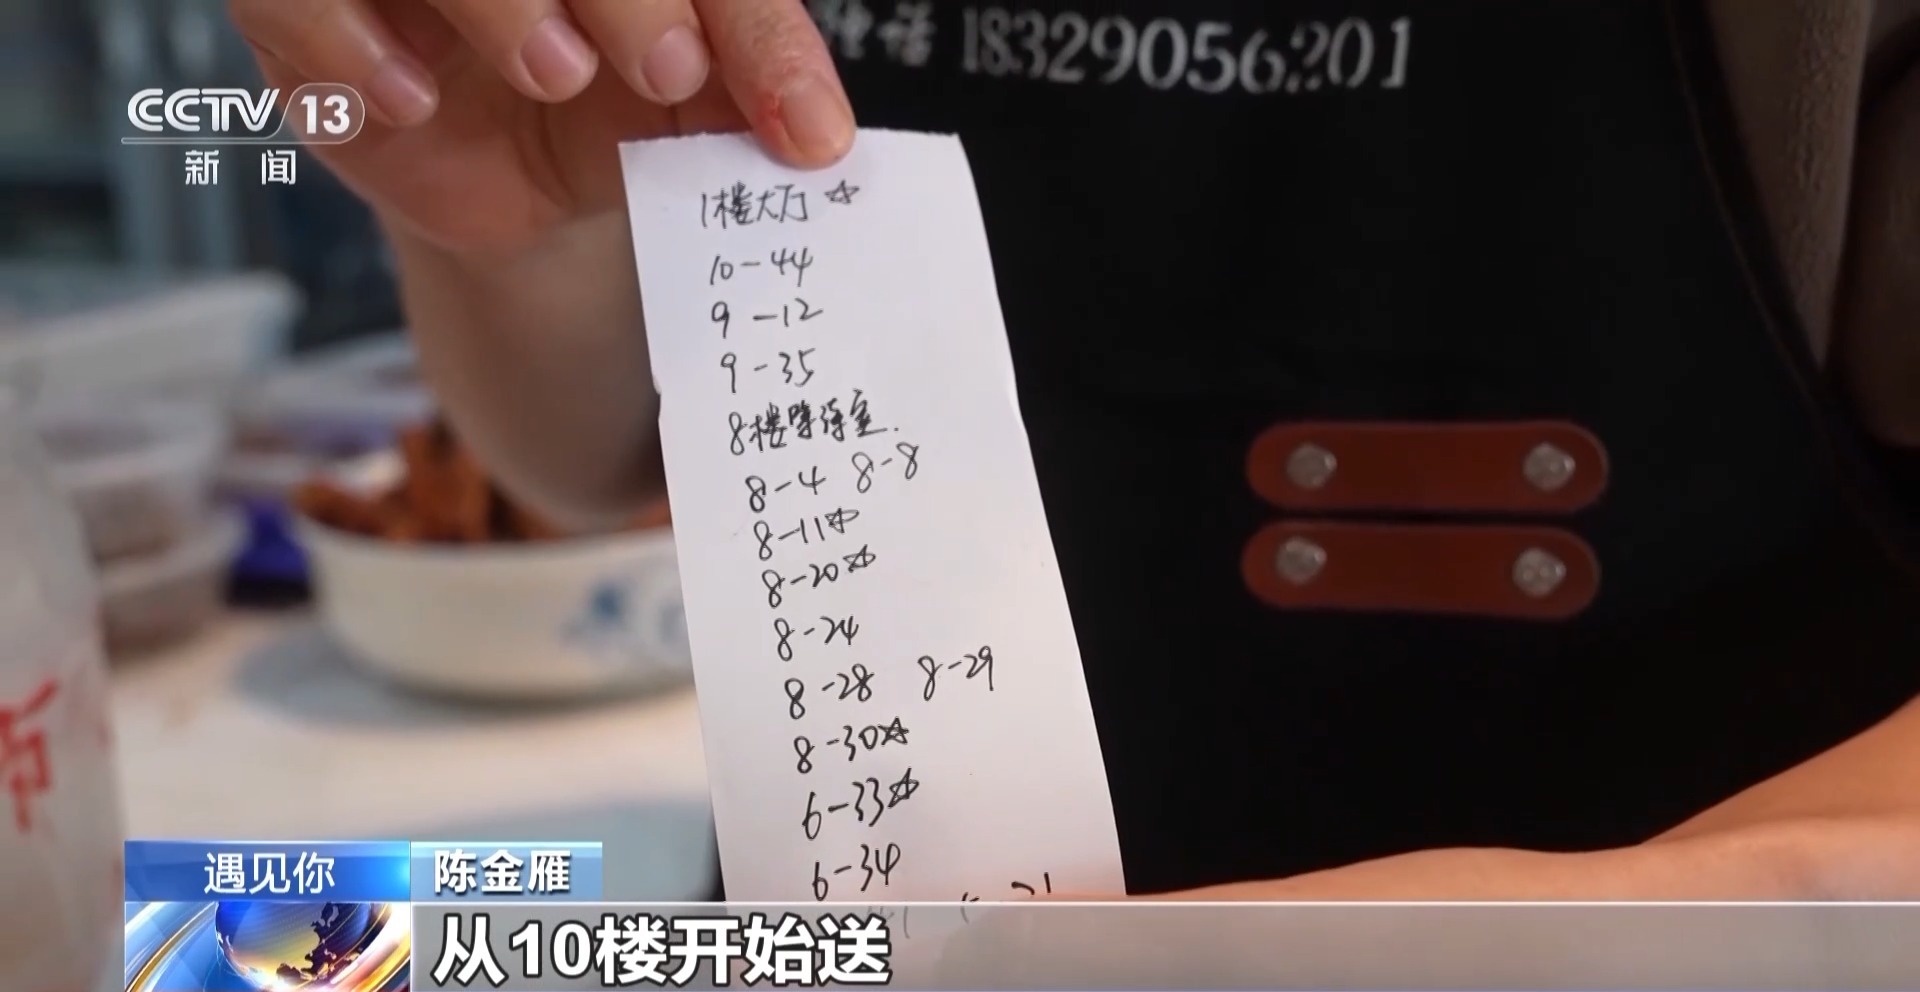 电话 18329056201
CCTV 13
新闻
1楼大厅 ☆
10-44
9-12
9-35
8楼等待室.
8-4 8-8
8-11☆
8-20☆
8-24
8-28 8-29
8-30☆
6-33☆
6-34
遇见你 陈金雁
从10楼开始送